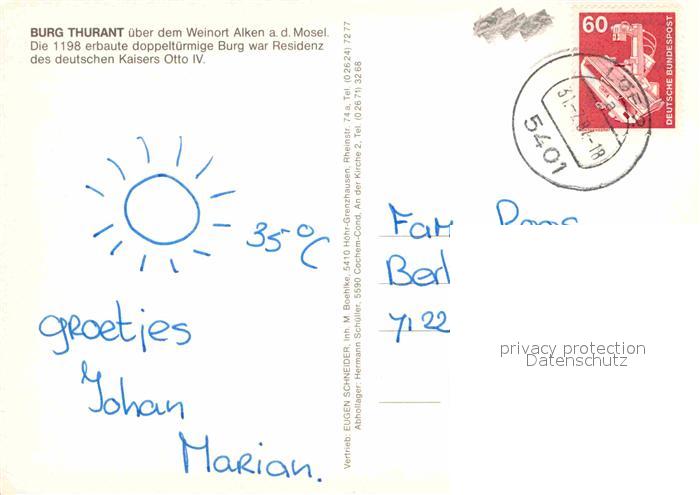 BURG THURANT über dem Weinort Alken a. d. Mosel.
Die 1198 erbaute doppeltürmige Burg war Residenz
des deutschen Kaisers Otto IV.
60
DEUTSCHE BUNDESPOST
5401
35°C
groetjes
Johan
Marian.
Vertrieb: EUGEN SCHNEIDER, Inh. M. Boehlke, 5410 Höhr-Grenzhausen, Rheinstr. 74 a, Tel. (0 26 24) 72 77
Abhollager: Hermann Schüller, 5590 Cochem-Cond, An der Kirche 2, Tel. (0 26 71) 32 68
Fam
Berl
privacy protection
Datenschutz